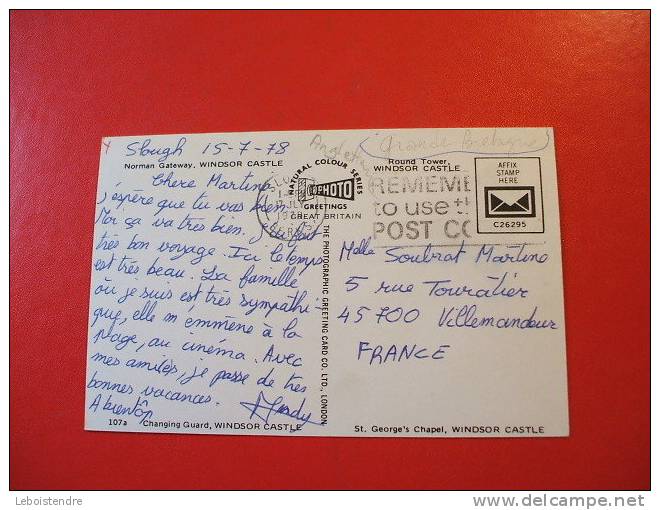 Slough 15-7-78
Angleterre
(Grande Bretagne)
Norman Gateway, WINDSOR CASTLE
Round Tower,
WINDSOR CASTLE
AFFIX
STAMP
HERE
C26295
NATURAL COLOUR SERIES
PHOTO
GREETINGS
GREAT BRITAIN
REMEMBE
to use th
POST CO
Chere Martine
j'espère que tu vas bien.
Moi ça va très bien. J'ai fait
très bon voyage. Ici le temps
est très beau. La famille
où je suis est très sympathi-
que, elle m'emmène à la
plage, au cinéma. Avec
mes amies, je passe de très
bonnes vacances.
A bientôt
THE PHOTOGRAPHIC GREETING CARD CO. LTD., LONDON.
Melle Soubrat Martine
5 rue Touratier
45700 Villemandeur
FRANCE
107a Changing Guard, WINDSOR CASTLE
St. George's Chapel, WINDSOR CASTLE
Leboistendre
delcampe.net